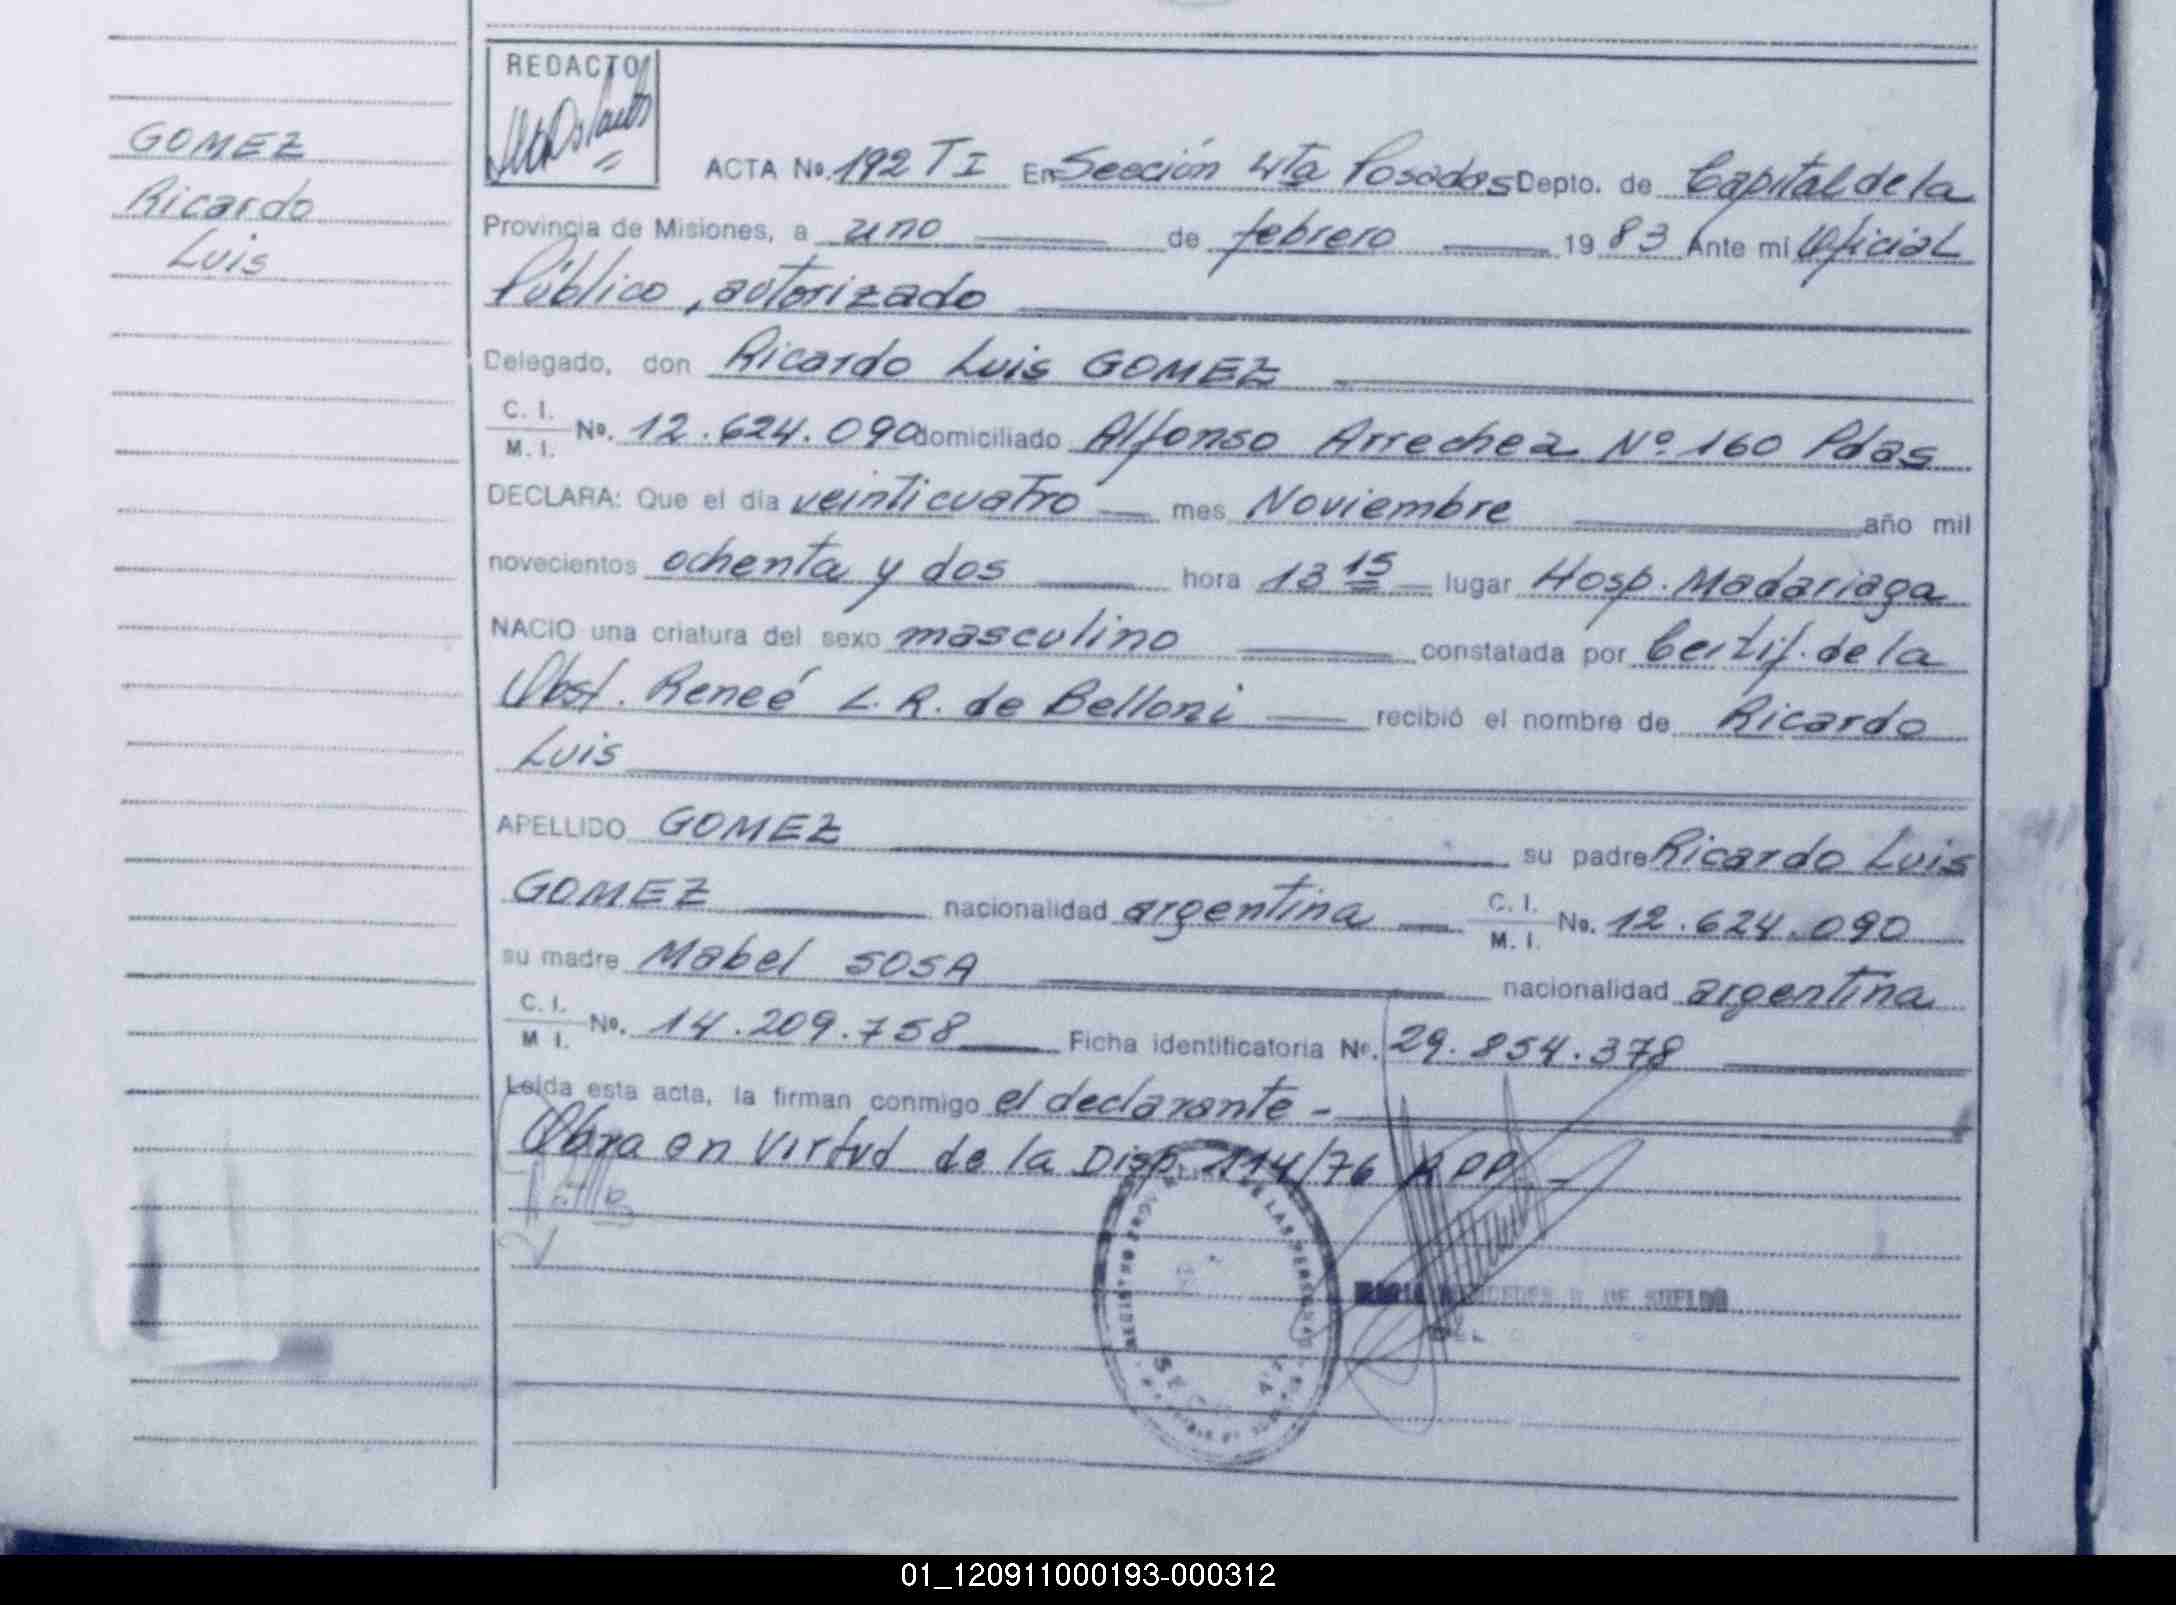 GOMEZ
Ricardo
Luis
REDACTO
ACTA No. 192 T I En Sección 4ta Posadas Depto. de Capital de la
Provincia de Misiones, a uno de febrero 1983 Ante mí Oficial
Público, autorizado
Delegado, don Ricardo Luis GOMEZ
C. I.
M. I.
No. 12.624.090 domiciliado Alfonso Arrechea Nº 160 Pdas
DECLARA: Que el día veinticuatro mes Noviembre año mil
novecientos ochenta y dos hora 13 15 lugar Hosp. Madariaga
NACIO una criatura del sexo masculino constatada por Certif. de la
Obst. Reneé L. R. de Belloni recibió el nombre de Ricardo
Luis
APELLIDO GOMEZ su padre Ricardo Luis
GOMEZ nacionalidad argentina C. I. M. I. No. 12.624.090
su madre Mabel SOSA nacionalidad argentina
C. I.
M I.
No. 14.209.758 Ficha identificatoria No. 29.854.378
Leída esta acta, la firman conmigo el declarante -
Obra en virtud de la Disp. /76 RPP -
REGISTRO DE LAS PERSONAS
DE SUELDO
01_120911000193-000312